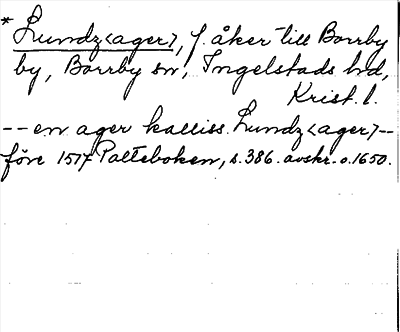 * Lundz<ager>, f. åker till Borrby
by, Borrby sn, Ingelstads hd,
Krist. l.
-- en ager kalliss. Lundz<ager> --
före 1517 Palteboken, s. 386. avskr. o. 1650.